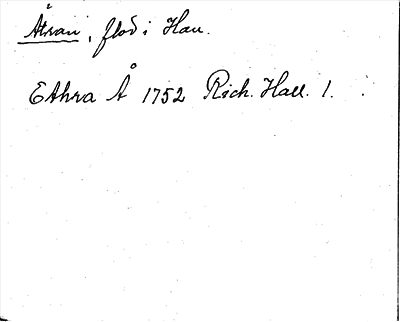 Ätran, flod i Hall.
Ethra Å 1752 Rich. Hall. 1.